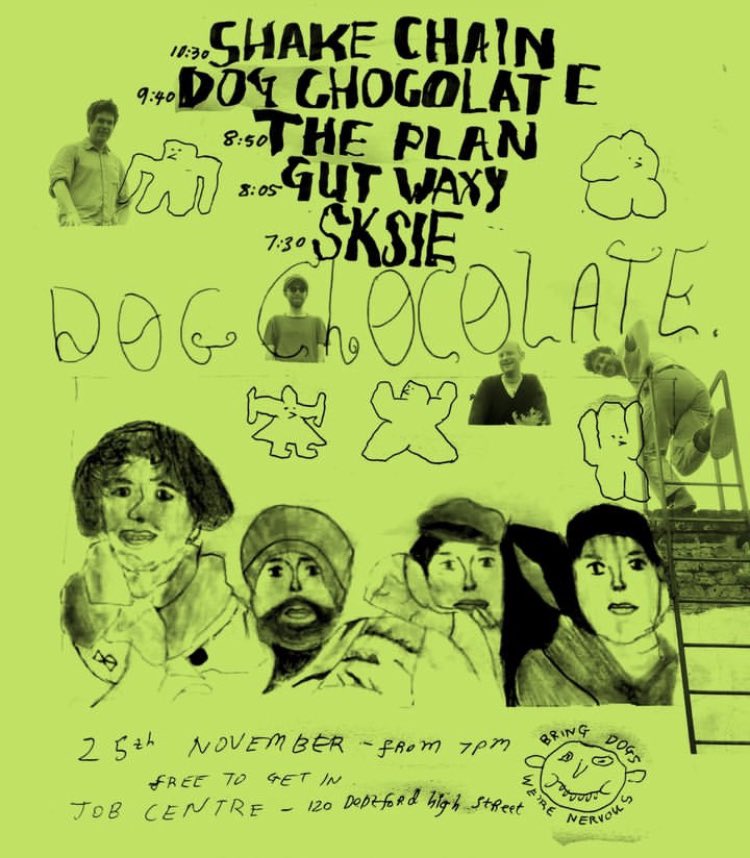 10:30 SHAKE CHAIN
9:40 DOG CHOCOLATE
8:50 THE PLAN
8:05 GUT WAXY
7:30 SKSIE
DOG CHOCOLATE.
25th NOVEMBER - FROM 7PM
FREE TO GET IN
JOB CENTRE - 120 Deptford high street
BRING DOGS
WE'RE NERVOUS